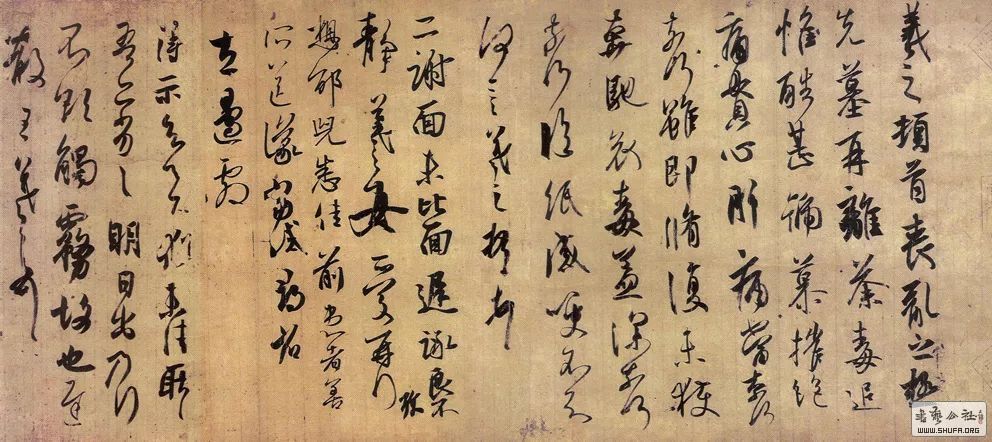 羲之頓首喪亂之極
先墓再離荼毒追
惟酷甚號慕摧絕
痛貫心肝痛當奈何
奈何雖即脩復未獲
奔馳哀毒益深奈何
奈何臨紙感哽不知
何言羲之頓首頓首
二謝面未比面遲詠良不
靜羲之女愛再拜
想邵兒悉佳前患者善
所送議當試尋省
左邊劇
得示知足下猶未佳耿耿
吾亦劣劣明日出乃行
不欲觸霧故也遲
散王羲之頓首
WWW.SHUFA.ORG